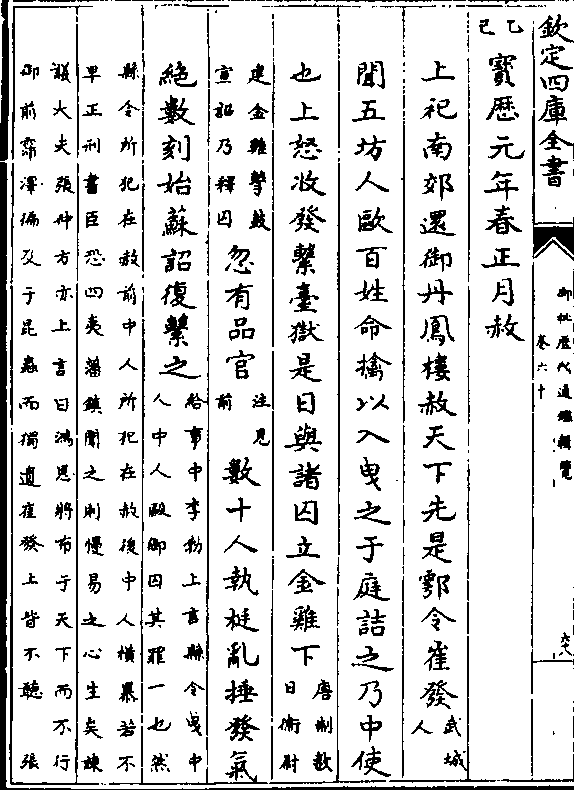 欽定四庫全書
御批歷代通鑑輯覽
卷六十
六八
乙巳
寳歴元年春正月赦
上祀南郊還御丹鳳樓赦天下先是鄠令崔發武城人
聞五坊人毆百姓命擒以入曳之于庭詰之乃中使
也上怒收發繫臺獄是日與諸囚立金雞下唐制赦日衞尉
建金雞擊鼓宣詔乃釋囚忽有品官注見前數十人執梃亂捶發氣
絶數刻始蘇詔復繫之給事中李勃上言縣令曳中人中人毆御囚其罪一也然
縣令所犯在赦前中人所犯在赦後中人横暴若不早正刑書臣恐四夷藩鎮聞之則慢易之心生矣諫
議大夫張仲方亦上言曰鴻恩將布于天下而不行御前霈澤徧及于昆蟲而獨遺崔發上皆不聽張